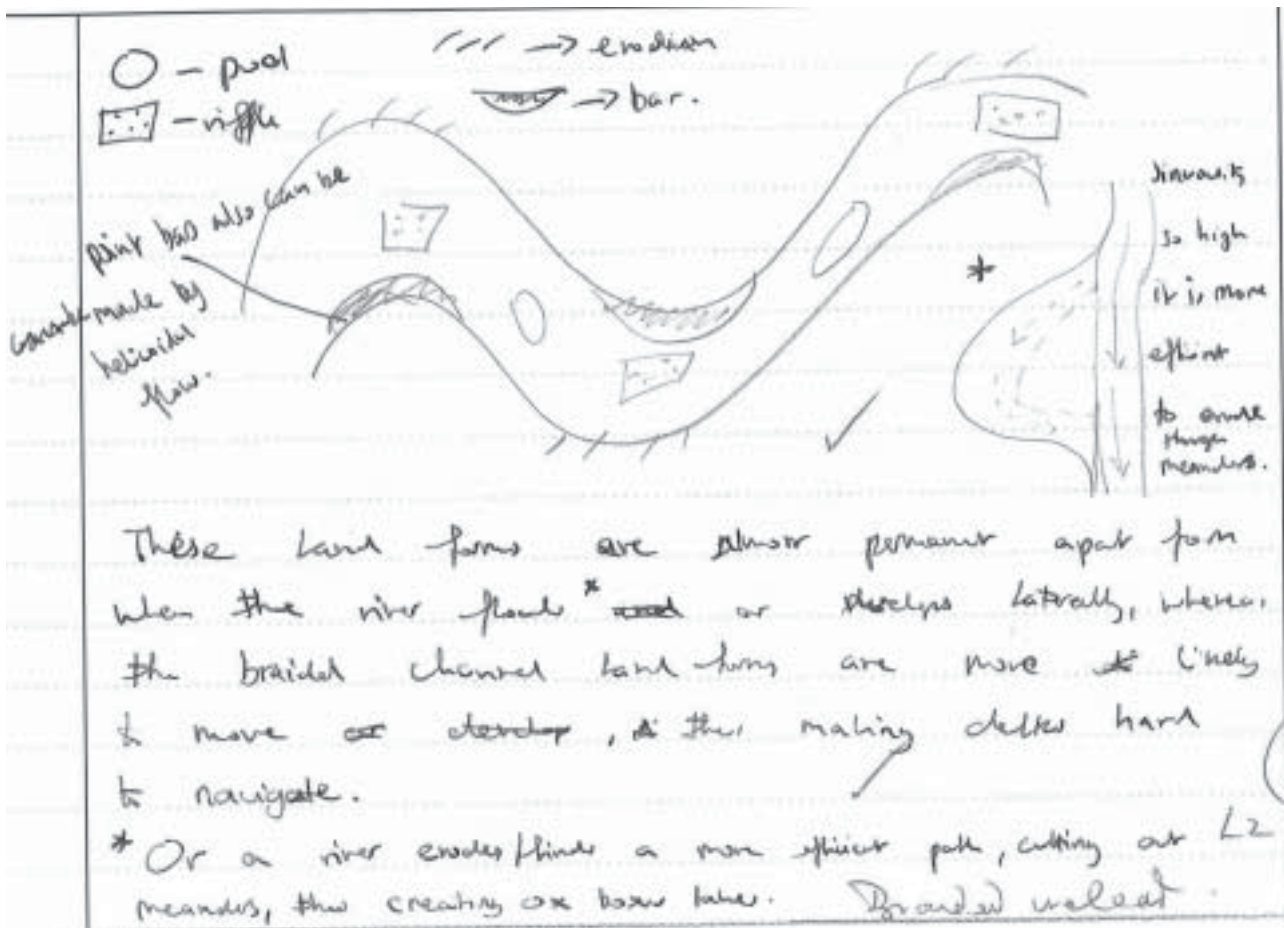 O - pool
/// -> erosion
-> bar.
- riffle
point bar also can be
made by
helicoidal
flow.
sinuosity
so high
it is more
efficient
to erode
through
meanders.
*
These land forms are almost permanent apart from
when the river floods * or develops laterally, whereas
the braided channel land forms are more likely
to move or develop, thus making deltas hard
to navigate.
* Or a river erodes/finds a more efficient path, cutting out
L2
meanders, thus creating ox bow lakes.